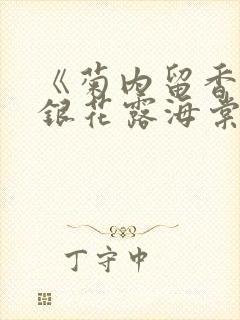 《菊内留香
银花露海棠
丁守中